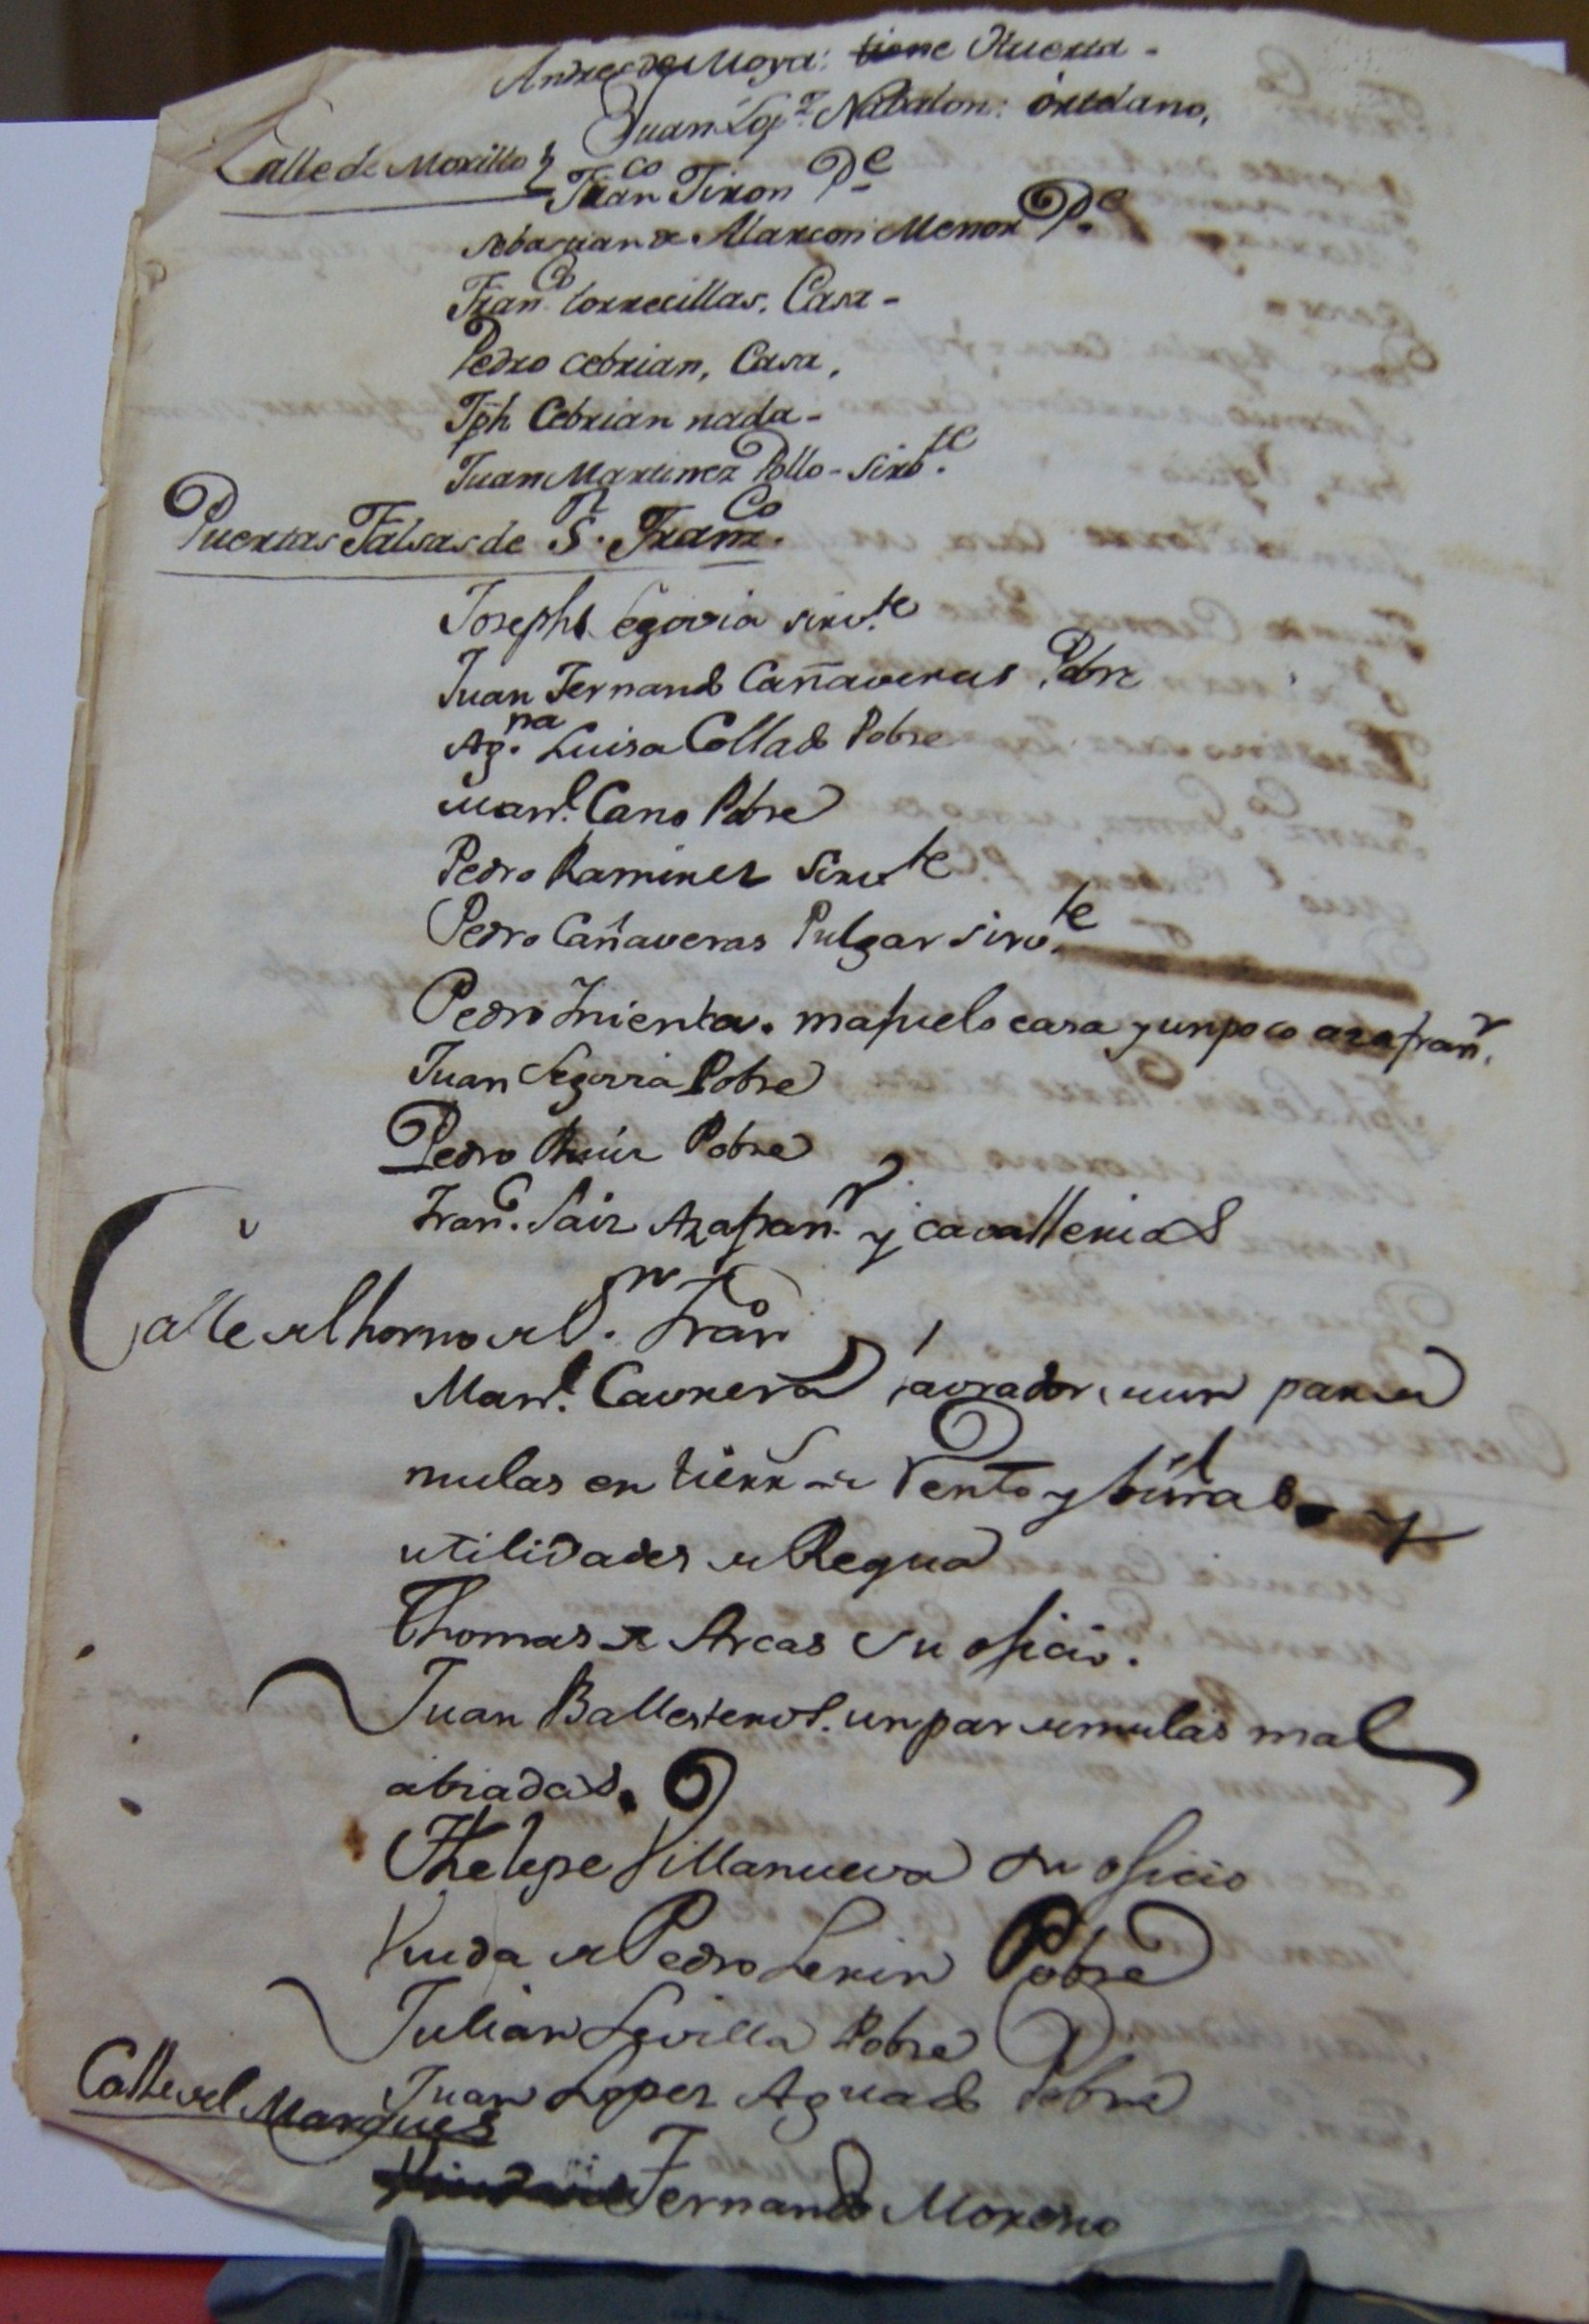 Andres de Moya: tiene Huerta -
Juan Lopz. Nabalon: ortelano,
Calle de Morillo
Franco Tixon Pe
Sebastian de Alarcon Menor Pe
Franco torrecillas. Casa -
Pedro Cebrian, Casa,
Jph Cebrian nada -
Juan Martinez Pollo - Sirbte.
Puertas Falsas de Sn. Franco.
Joseph Segovia sirvte
Juan Fernando Cañaveras Pobre
Agna. Luisa Collado Pobre
Manl. Cano Pobre
Pedro Ramirez Sirvte
Pedro Cañaveras Pulgar Sirvte
Pedro Inienta. majuelo casa y un poco azafran.
Juan Segovia Pobre
Pedro Ruiz Pobre
Franco. Saiz Azafran. y cavallerias
Calle del horno de Sn. Fran
Manl. Cavrera Lavrador, un par de
mulas en tierr de Vento y suias y
utilidades de Requa
Thomas de Arcas su oficio.
Juan Ballesteros. un par de mulas mal
abiadas.
Phelipe Villanueva su oficio
Viuda de Pedro Lerin Pobre
Julian Sevilla Pobre
Juan Lopez Aguado Pobre
Calle del Marques
Fernando Moreno